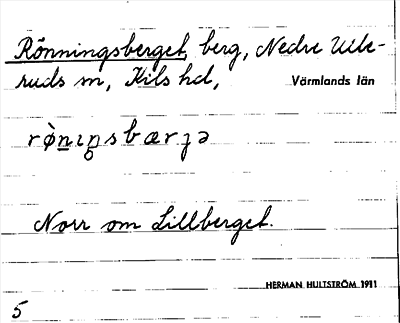 Rönningsberget, berg, Nedre Ulle-
ruds sn, Kils hd,
Värmlands län
rø̀nıŋsbærɟə
Norr om Lillberget.
HERMAN HULTSTRÖM 1911
5